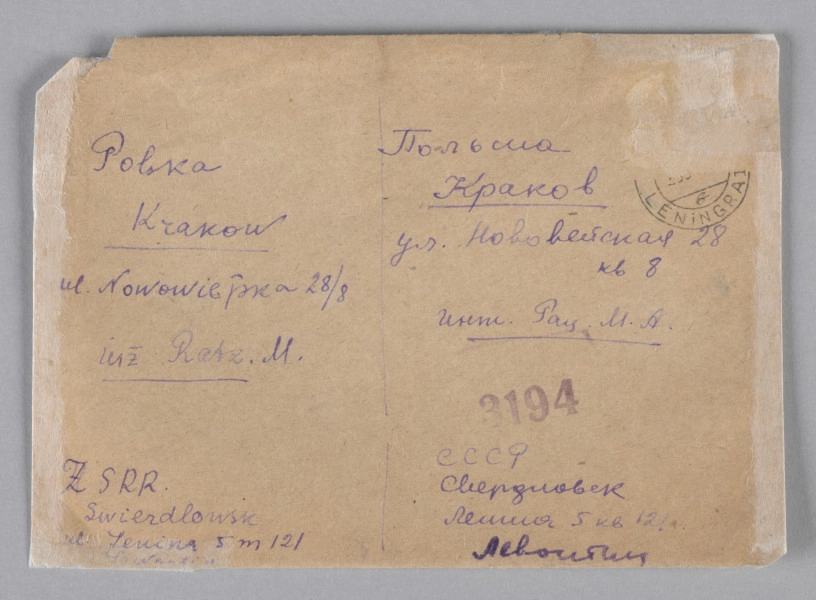 Polska
Krakow
ul. Nowowiejska 28/8
inż Ratz. M.
Z SRR.
Swierdlowsk
ul. Lenina 5 m 121
Польша
Краков
ул. Нововейская 28
кв 8
инж. Рац. М. А.
3194
СССР
Свердловск
Ленина 5 кв 121
Левонтин
LENINGRAD